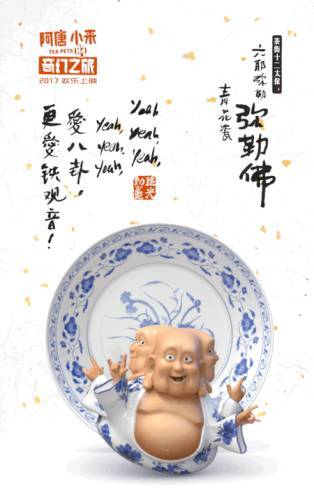 阿唐 小来
TEA PETS 的
奇幻之旅
2017 欢乐上映
茶街十二太保
弥勒佛
青花瓷
Yeah,
yeah,
yeah,
Yeah,
yeah,
yeah,
愛八卦，
更愛铁观音！
追光
动画